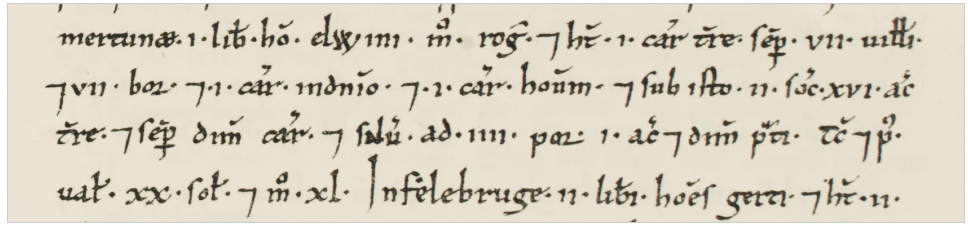 mertunæ. i. lib̄. hō. elƿini. m̊. rog̃. ⁊ ht̄. i. car̃ t̄re. sēp̱. vii. uilłi.
⁊ vii. bor. ⁊. i. car̃. indnīo. ⁊. i. car̃. hoūm. ⁊ sub isto. ii. soc̃. xvi. ac̃
t̄re. ⁊ sēp̱ dim̄ car̃. ⁊ silū. ad. iiii. por. i. ac̃ ⁊ dim̄ p̃ti. tc̄ ⁊ p̊.
uał. xx. soł. ⁊ m̊. xl. Infelebruge. ii. lib̄i. hoēs gerti. ⁊ ht̄. ii.